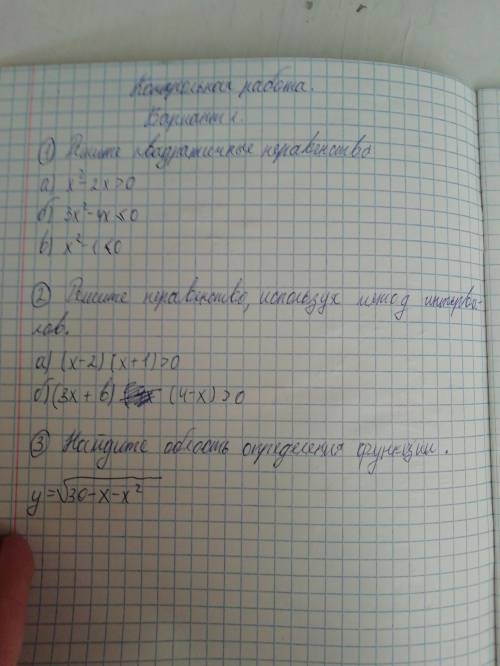 Контрольная работа.
Вариант 1.
① Решите квадратичные неравенства
а) x²-2x>0
б) 3x²-4x<0
в) x²-1<0
② Решите неравенство, используя метод интерва-
лов.
а) (x-2)(x+1)>0
б) (3x+6) (4-x)>0
③ Найдите область определения функции.
y=√30-x-x²